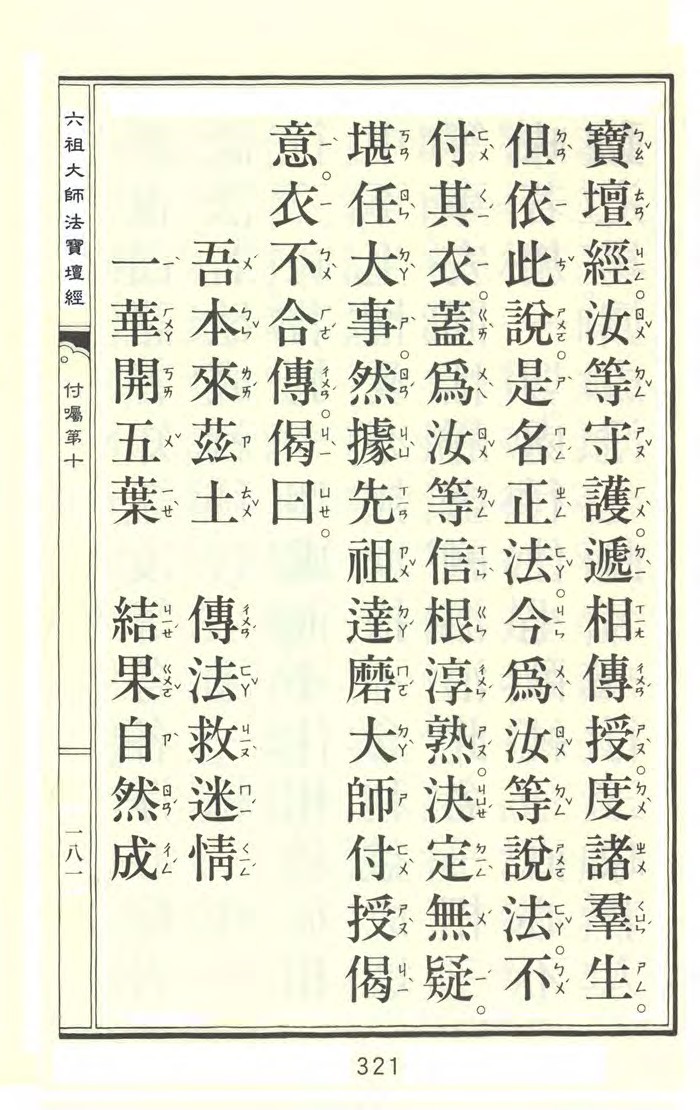 寶壇經。汝等守護。遞相傳授。度諸羣生。
但依此說。是名正法。今爲汝等說法。不
付其衣。蓋爲汝等信根淳熟。決定無疑。
堪任大事。然據先祖達磨大師付授偈
意。衣不合傳。偈曰。
吾本來茲土 傳法救迷情
一華開五葉 結果自然成
六祖大師法寶壇經
付囑第十
一八一
321